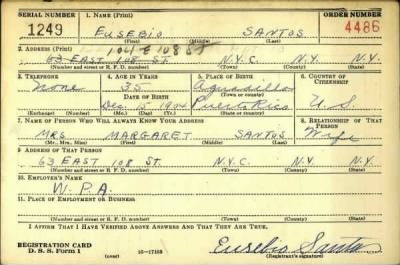 SERIAL NUMBER 1. NAME (Print) ORDER NUMBER
1249 EUSEBIO SANTOS 4486
(First) (Middle) (Last)
2. ADDRESS (Print)
104 E 108 ST
63 EAST 108 ST. N.Y.C. N.Y. N.Y.
(Number and street or R. F. D. number) (Town) (County) (State)
3. TELEPHONE 4. AGE IN YEARS 5. PLACE OF BIRTH 6. COUNTRY OF CITIZENSHIP
None 35 Aguadilla
DATE OF BIRTH (Town or county)
Dec 15 1904 Puerto Rico U.S.
(Mo.) (Day) (Yr.) (State or country)
7. NAME OF PERSON WHO WILL ALWAYS KNOW YOUR ADDRESS 8. RELATIONSHIP OF THAT PERSON
MRS MARGARET SANTOS Wife
(Mr., Mrs., Miss) (First) (Middle) (Last)
9. ADDRESS OF THAT PERSON
63 EAST 108 ST. N.Y.C. N.Y. N.Y.
(Number and street or R. F. D. number) (Town) (County) (State)
10. EMPLOYER'S NAME
W.P.A.
11. PLACE OF EMPLOYMENT OR BUSINESS
(Number and street or R. F. D. number) (Town) (County) (State)
I AFFIRM THAT I HAVE VERIFIED ABOVE ANSWERS AND THAT THEY ARE TRUE.
REGISTRATION CARD
D. S. S. Form 1 (over) 16-17105 Eusebio Santos
(Registrant's signature)